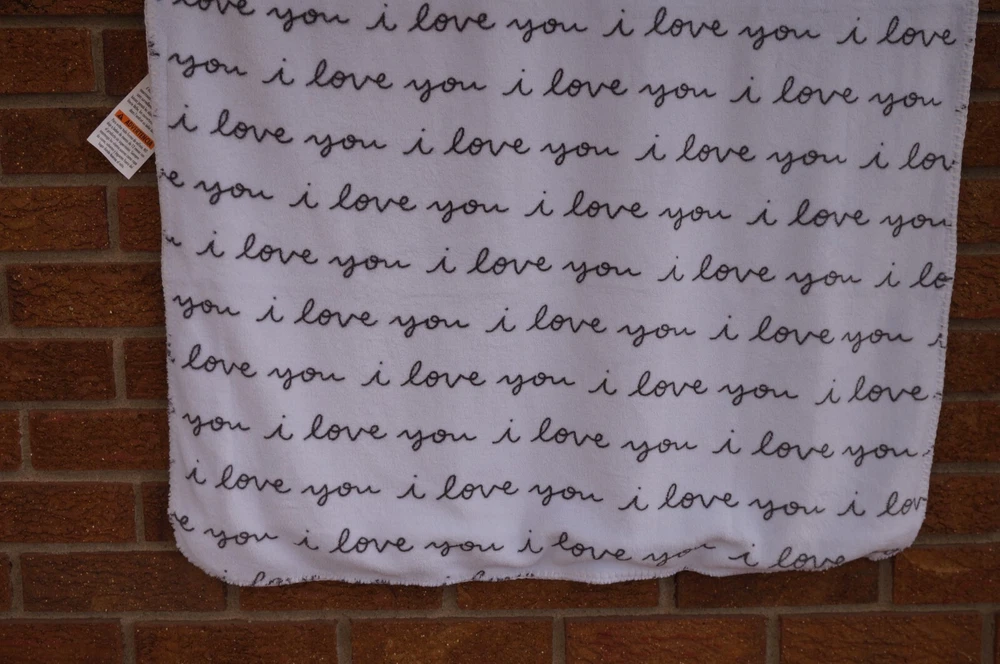 love you i love you i love you i love
you i love you i love you i love you
i love you i love you i love you i lov
e you i love you i love you i love you
i love you i love you i love you i lo
you i love you i love you i love you
love you i love you i love you i love
you i love you i love you i love you
i love you i love you i love you i lov
e you i love you i love you i love